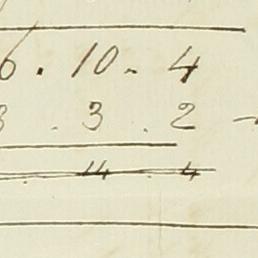 6 . 10 . 4
3 . 3 . 2
14 . 4